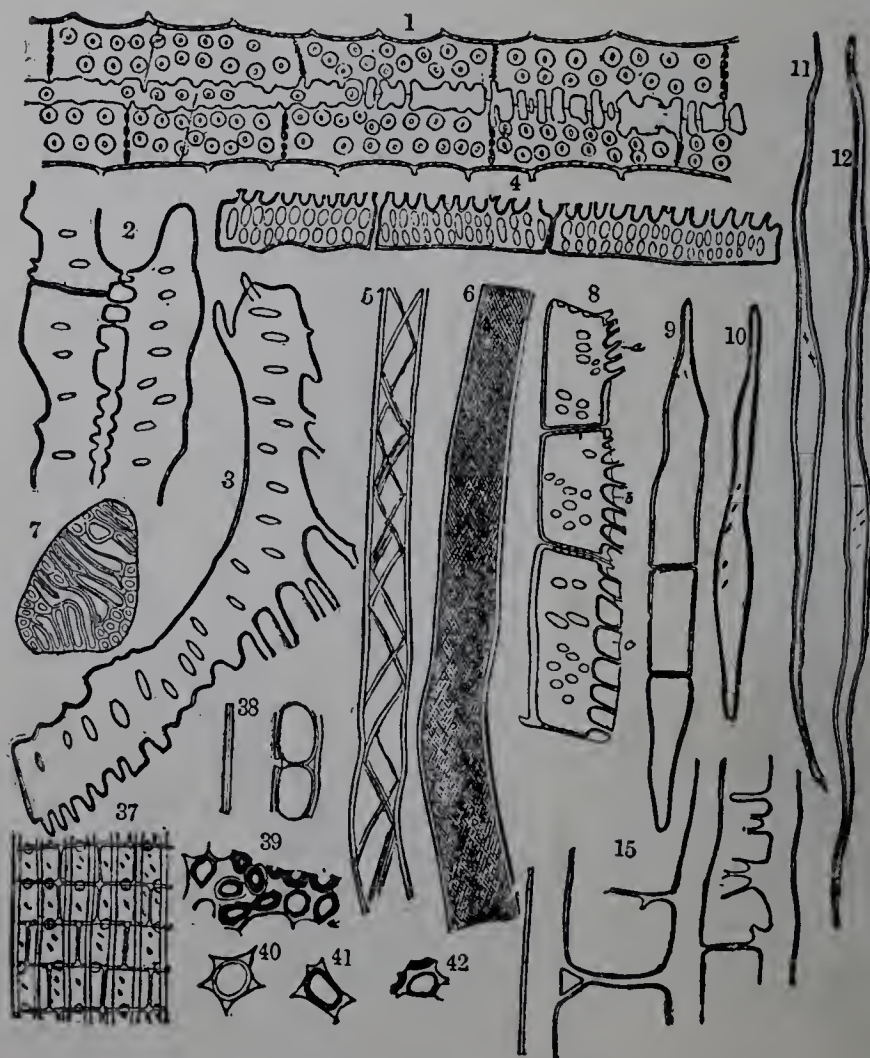 1
11
12
4
2
5
6
8
9
10
3
7
38
37
39
15
40
41
42